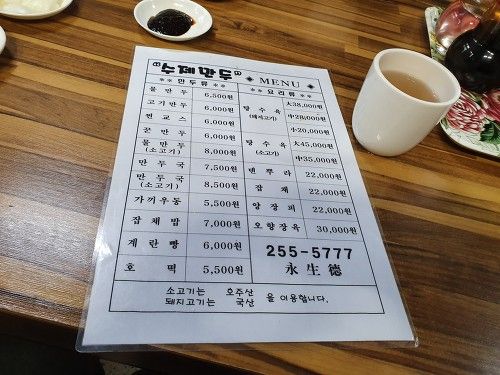 "수제만두" ◈ MENU ◈
※※ 만두류 ※※
물만두 6,500원
고기만두 6,000원
면교스 6,000원
군만두 6,000원
물만두 (소고기) 8,000원
만두국 7,500원
만두국 (소고기) 8,500원
가끼우동 5,500원
잡채밥 7,000원
계란빵 6,000원
호떡 5,500원
※※ 요리류 ※※
탕수육 (돼지고기) 大38,000원
中28,000원
小20,000원
탕수육 (소고기) 大45,000원
中35,000원
뗀뿌라 22,000원
잡채 22,000원
양장피 22,000원
오향장육 30,000원
255-5777
永生德
소고기는 호주산
돼지고기는 국산 을 이용합니다.